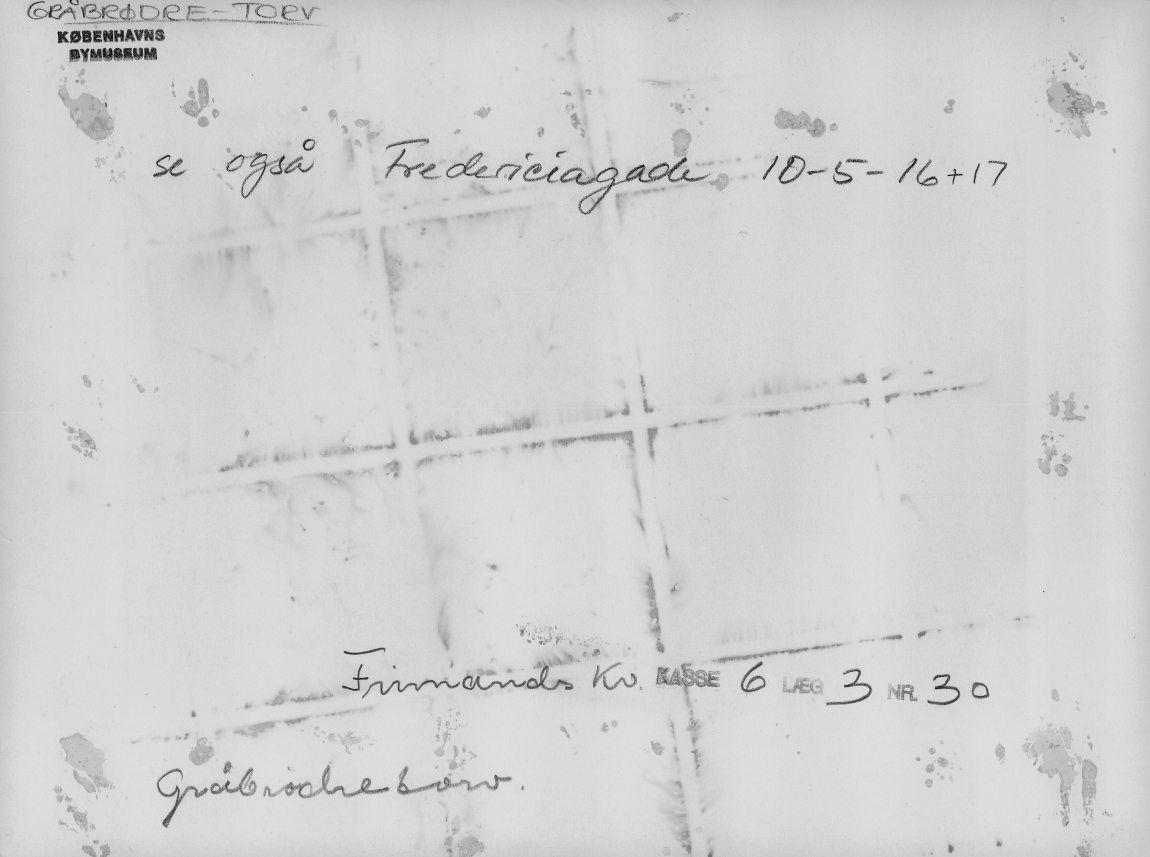 GRÅBRØDRE-TORV
KØBENHAVNS
BYMUSEUM
se også Fredericiagade 10-5-16+17
Frimands Kv. KASSE 6 LÆG 3 NR. 30
Gråbrødretorv.